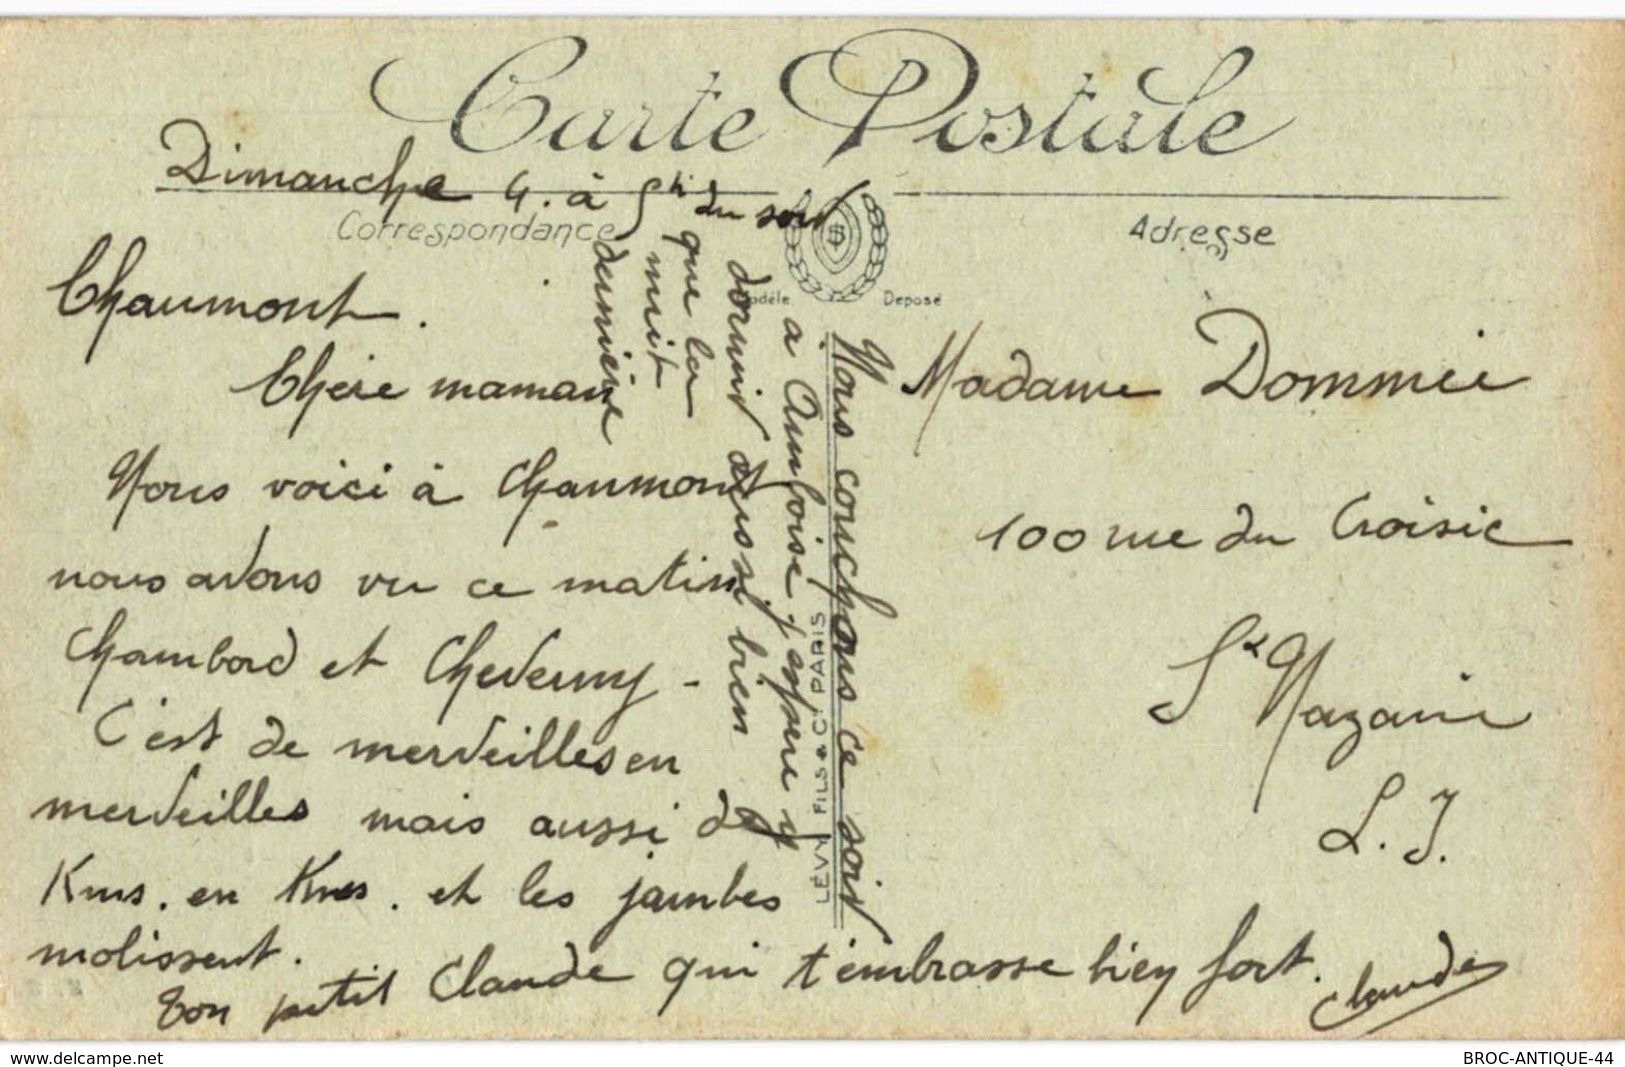 Carte Postale
Dimanche 4. à 5h du soir
Correspondance
Adresse
Modèle Déposé
Chaumont.
Chère maman
Nous voici à Chaumont
nous avons vu ce matin
Chambord et Cheverny -
C'est de merveilles en
merveilles mais aussi de
Kms. en Kms. et les jambes
molissent.
Ton petit Claude qui t'embrasse bien fort.
Claude
Nous couchons ce soir
à Amboise j'espère y
dormir aussi bien
que la
nuit
dernière
LÉVY FILS & Cie PARIS
Madame Dommée
100 rue du Croisic
St Nazaire
L. I.
www.delcampe.net
BROC-ANTIQUE-44